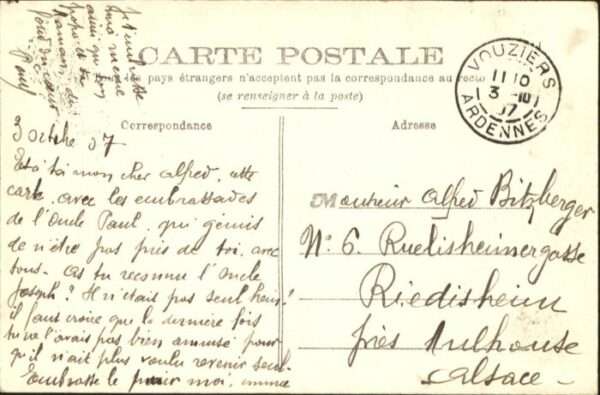 CARTE POSTALE
pays étrangers n'acceptent pas la correspondance au recto
(se renseigner à la poste)
Correspondance
Adresse
VOUZIERS
11 10
3 -10
07
ARDENNES
3 octobre 07
Et à toi mon cher Alfred, cette
carte, avec les embrassades
de l'Oncle Paul, qui gémis
de n'être pas près de toi, avec
tous. As tu reconnu l'Oncle
Joseph? Il n'était pas seul hein!
il faut croire que la dernière fois
tu ne l'avais pas bien amusé pour
qu'il n'ait plus voulu revenir seul.
Embrasse le pour moi,
Je t'embrasse
ainsi que ton
papa et ta
maman, du
fond du cœur
Paul
Monsieur Alfred Bitzberger
N° 6. Ruelisheimergasse
Riedisheim
près Mulhouse
Alsace